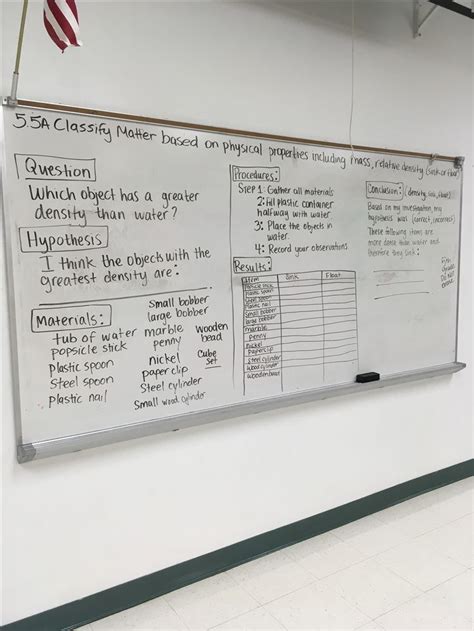 5.5A Classify Matter based on physical properties including mass, relative density (sink or float)
Question
Which object has a greater
density than water?
Hypothesis
I think the objects with the
greatest density are:
Materials:
tub of water
popsicle stick
plastic spoon
Steel spoon
plastic nail
Small bobber
large bobber
marble
penny
nickel
paper clip
Steel cylinder
Small wood cylinder
Wooden
bead
Cube
set
Procedures:
Step 1: Gather all materials
2: fill plastic container
halfway with water
3: Place the objects in
water.
4: Record your observations
Results:
Item Sink Float
Popsicle stick
Plastic spoon
Steel spoon
Plastic nail
Small bobber
large bobber
marble
penny
nickel
Paperclip
Steel cylinder
Wood cylinder
wooden bead
Conclusion: (density, sink, float)
Based on my investigation, my
hypothesis was (correct, incorrect)
These following items are
more dense than water and
therefore they sink: